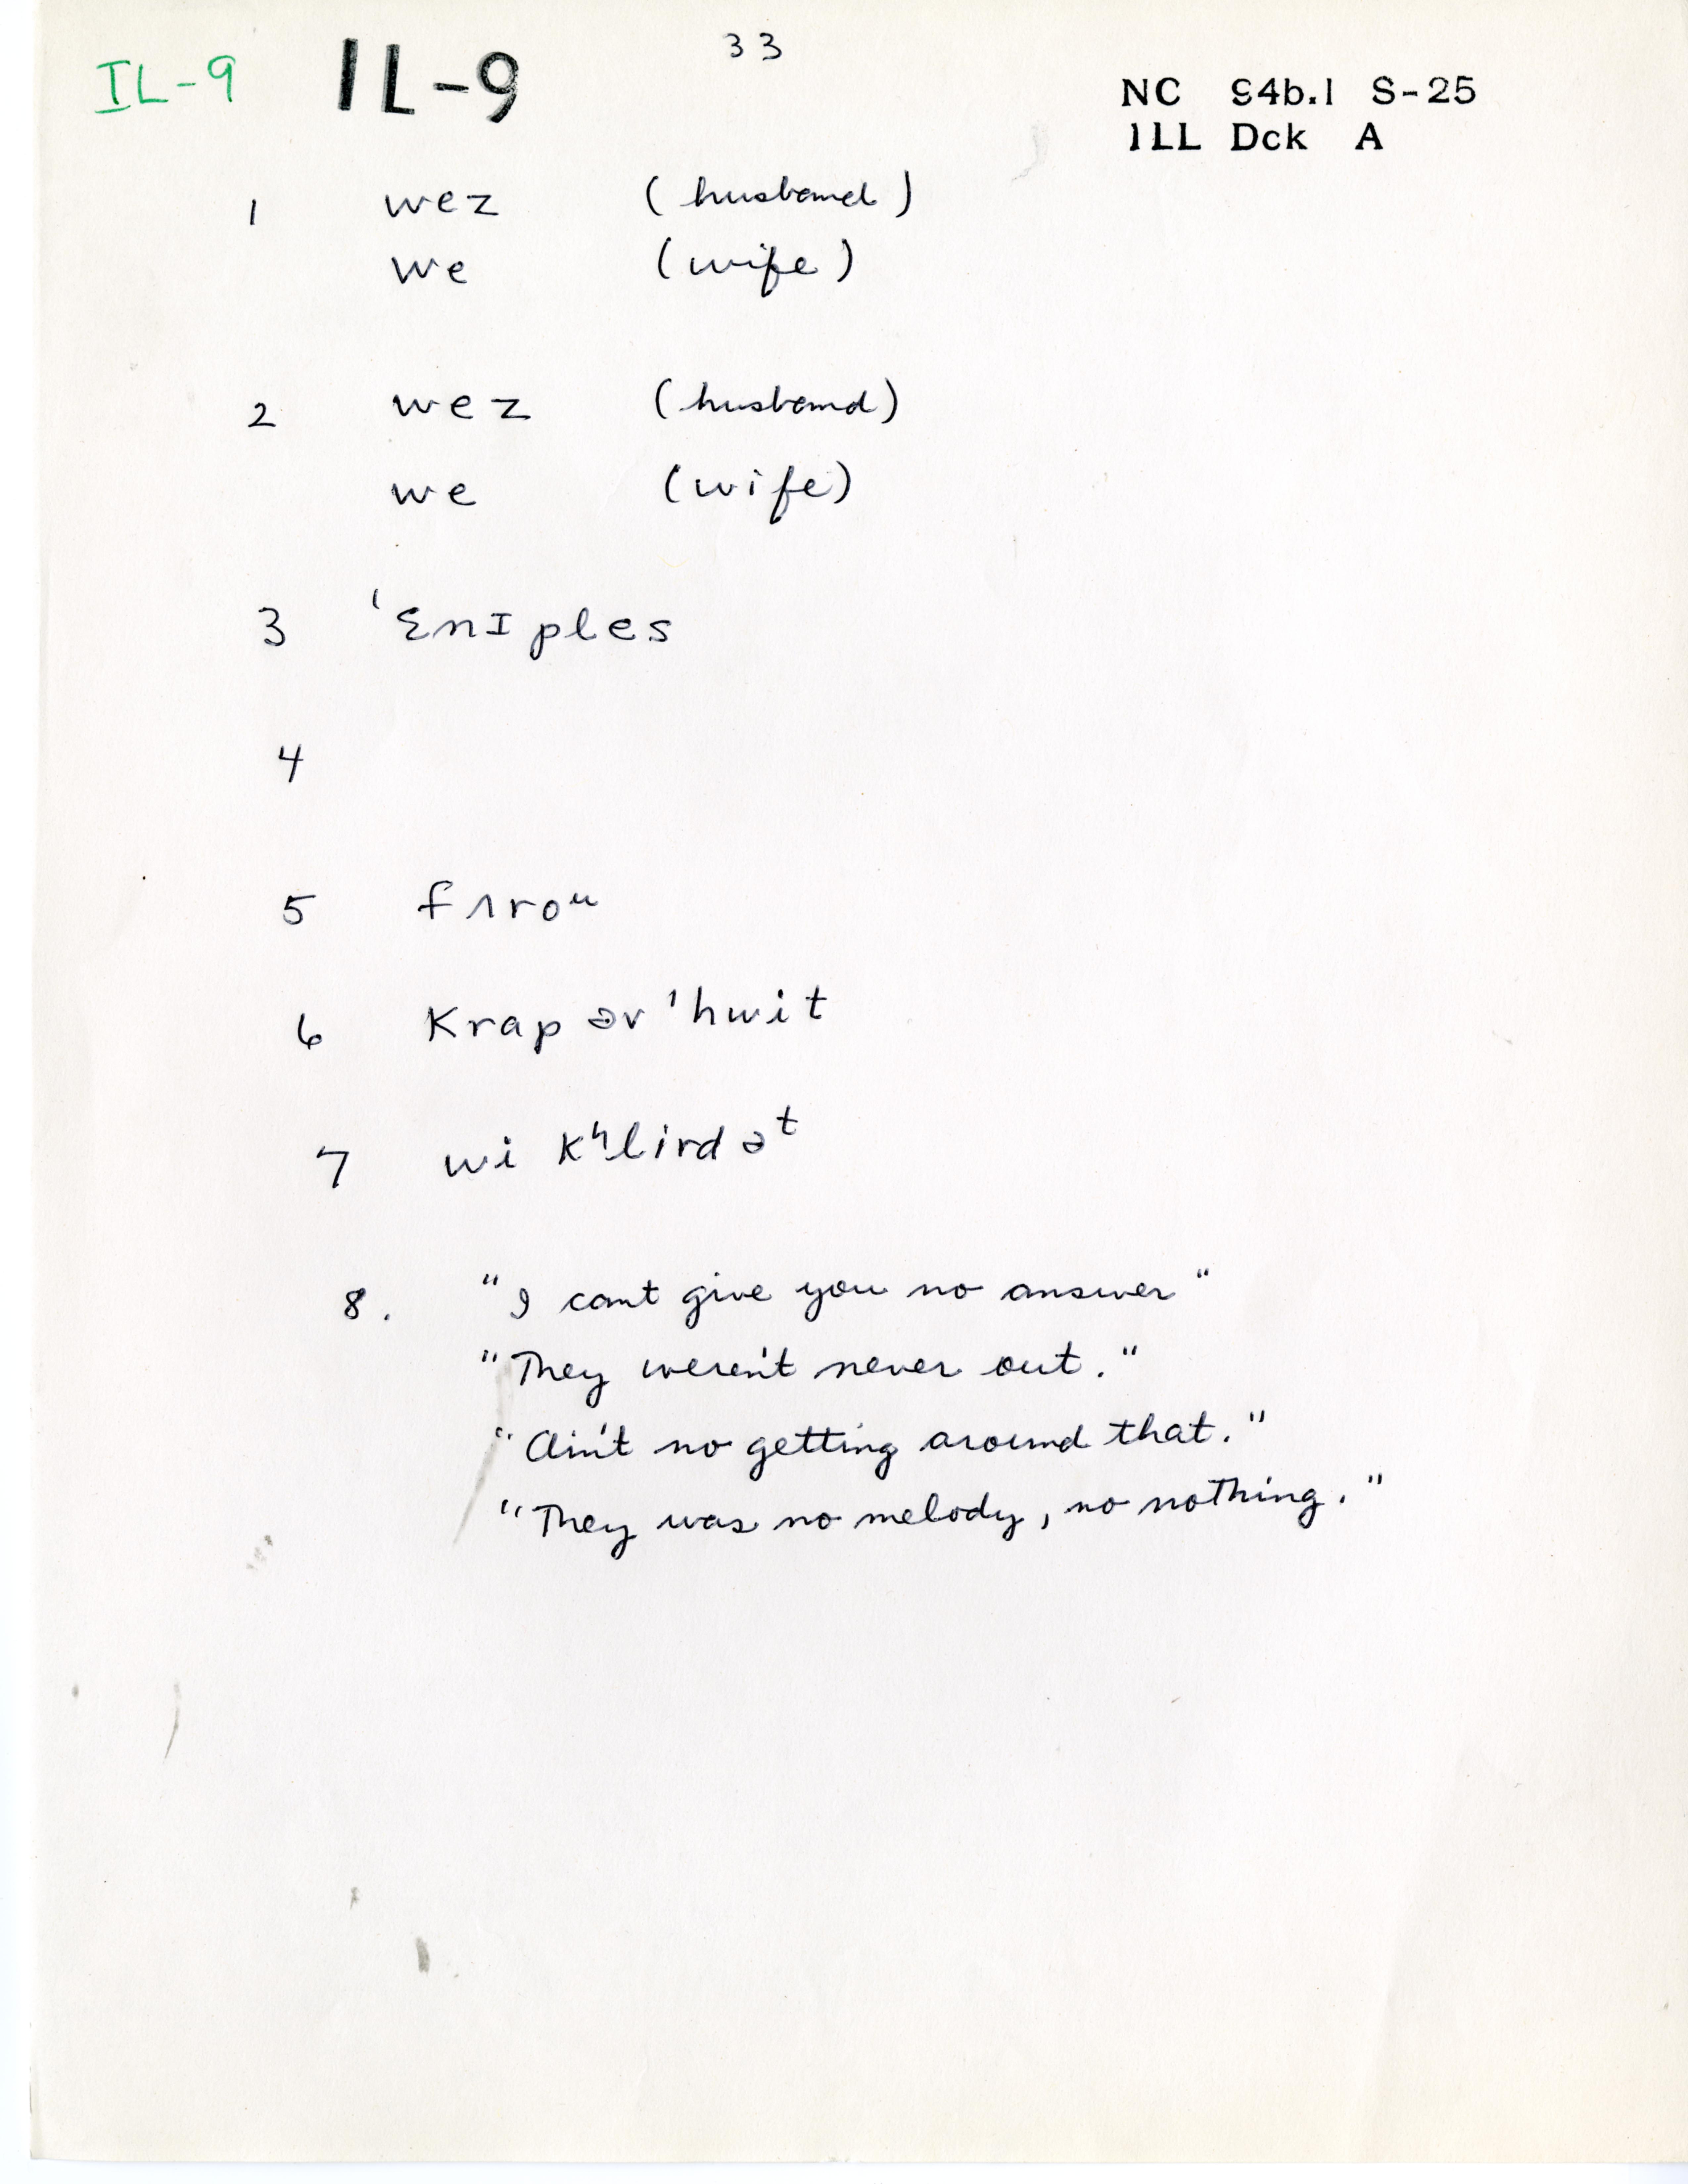 IL-9 IL-9 33
NC 94b.1 S-25
ILL Dck A
1 wez (husband)
we (wife)
2 wez (husband)
we (wife)
3 ˈɛnɪples
4
5 fʌroᵘ
6 Krap əv ˈhwit
7 wi Kʰlird əᵗ
8. "I cant give you no answer"
"They weren't never out."
"Ain't no getting around that."
"They was no melody, no nothing."